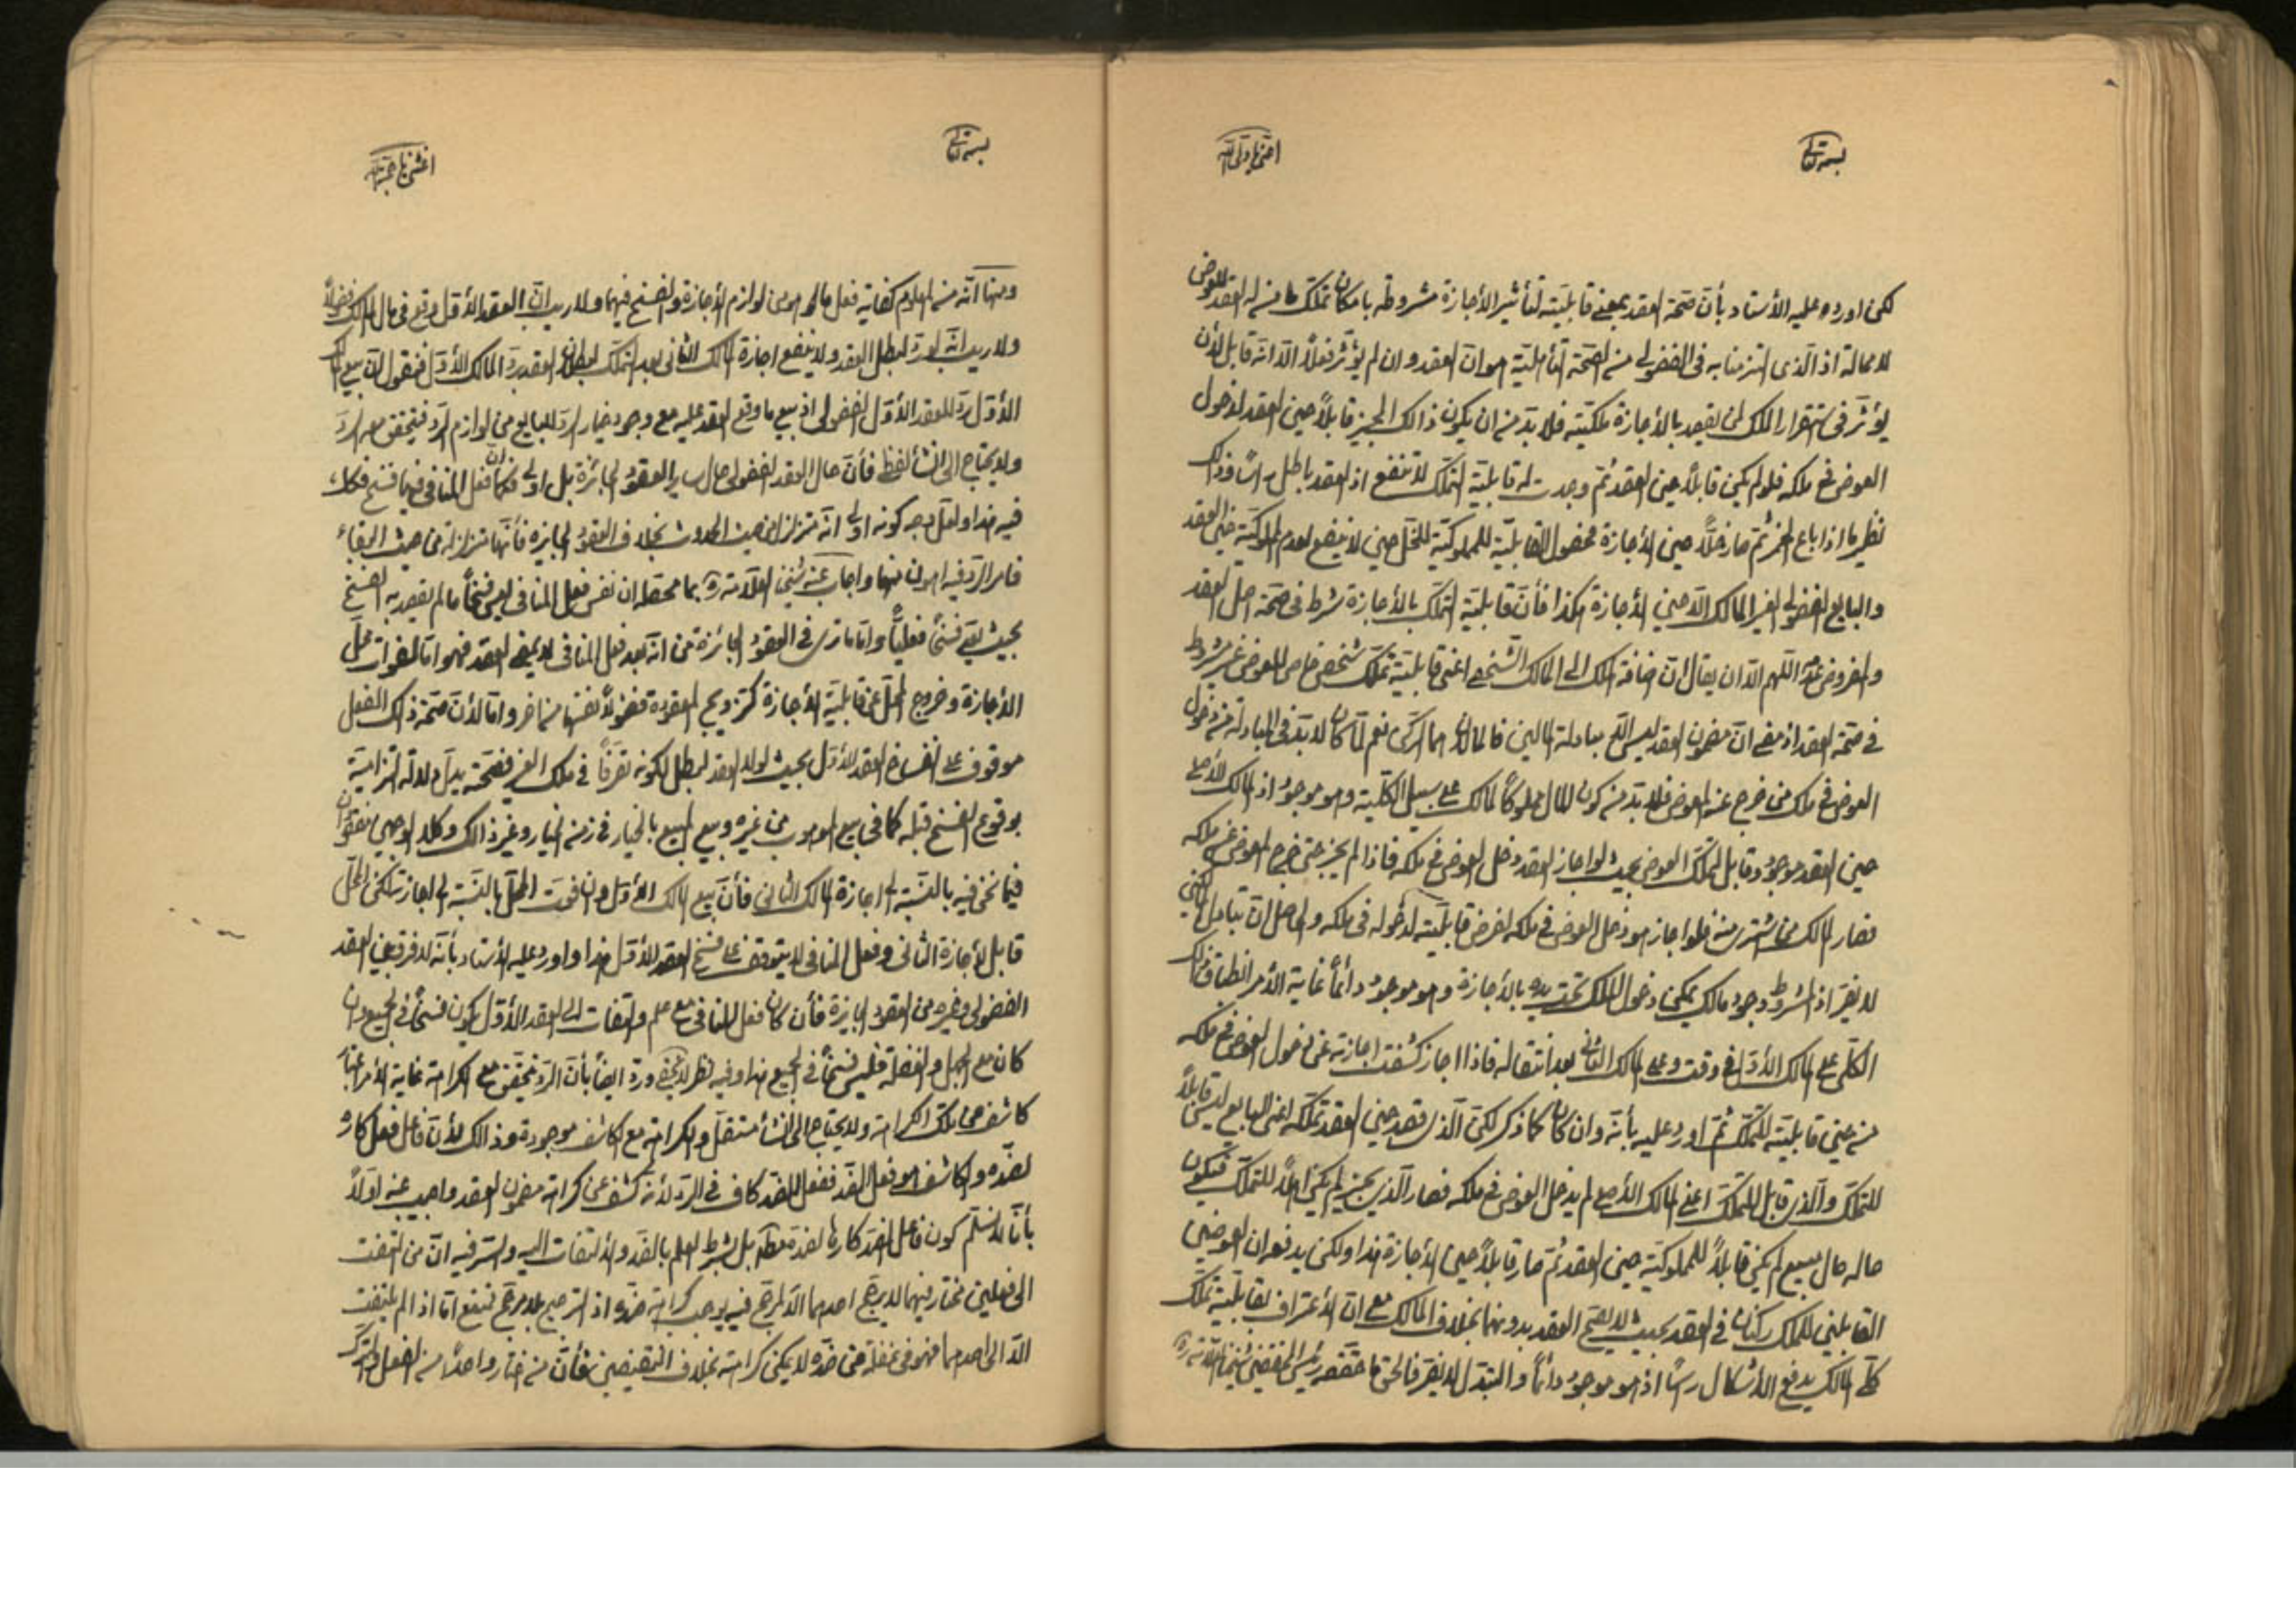 بسمه تعالی
لكن اورد عليه الأستاد بأن صحة العقد بمعنى قابليته لتأثير الأجازة مشروطة بامكان تملك من له العقد للعوض
لا محالة اذ الذى التزمنا به فى الفضولى من الصحة التأهلية هو ان العقد وان لم يؤثر فعلاً الا انه قابل لأن
يؤثر فى استقرار الملك لمن يقصد بالأجازة ملكيته فلا بد من ان يكون ذالك المجيز قابلاً حين العقد لدخول
العوض فى ملكه فلو لم يكن قابلاً حين العقد ثم وجدت له قابلية التملك لا تنفع اذ العقد باطل رأسًا وذلك
نظير ما اذا باع الخمر ثم صار خلاً حين الأجازة فحصول القابلية للمملوكية للخل حين لا ينفع لعدم المملوكية حين العقد
والبايع الفضولى لغير المالك الا حين الأجازة هكذا فأن قابلية التملك بالأجازة شرط فى صحة اصل العقد
والمفروض عدمه اللهم الا ان يقال ان اضافة الملك الى المالك الشخصى اعنى قابلية تملك شخص خاص للعوض غير مشروط
فى صحة العقد اذ مضى ان مضمون العقد ليس الا مبادلة المالين فالمالان هما الركن نعم لما كان لا بد فى المبادلة من دخول
العوض فى ملك من خرج عنه المعوض فلا بد من كون المال مملوكًا لمالك على سبيل الكلية وهو موجود اذ المالك الأصلى
حين العقد موجود وقابل لتملك العوض بحيث لو اجاز العقد دخل العوض فى ملكه فاذا لم يجز حتى خرج المعوض عن ملكه
فصار المالك من اشترى منه فلو اجاز هو دخل العوض فى ملكه لفرض قابليته لدخوله فى ملكه والحاصل ان تبادل
لا يضر اذ الشرط وجود مالك يمكن دخول الملك تحت يده بالأجازة وهو موجود دائمًا غاية الأمر انطباق ذالك
الكلى على المالك الأول فى وقت وعلى المالك الثانى بعد انتقاله فاذا اجاز كشفت اجازته عن دخول العوض فى ملكه
من حين قابليته للتملك ثم اورد عليه بأنه وان كان كما ذكر لكن الذى قصد حين العقد تملكه اعنى البايع ليس قابلاً
للتملك والذى قابل للتملك اعنى المالك الأصلى لم يدخل العوض فى ملكه فصار الذى يجيز لم يكن اهلاً للتملك فيكون
حاله حال مبيع لم يكن قابلاً للمملوكية حين العقد ثم صار قابلاً حين الأجازة هذا ولكن يدفعه ان العوضين
القابلين للملك ركنان فى العقد بحيث لا يصح العقد بدونهما بخلاف المالك مع ان الأعتراف بقابلية تملك
كلى المالك يدفع الأشكال رأسًا اذ هو موجود دائمًا والتبدل لا يضر فالحق ما حققه
بسمه تعالی
ومنها انه من المعلوم كفاية فعل ما هو من لوازم الأجازة والفسخ فيهما ولا ريب ان العقد الأول وقع فى مال المالك فضولاً
ولا ريب انه لو رد لبطل العقد ولا ينفع اجازة المالك الثانى بعد التملك لبطلان العقد برد المالك الأول فنقول ان بيع المالك
الأول رد للعقد الأول الفضولى اذ بيع ما وقع العقد عليه مع وجود خيار الرد للبايع من لوازم الرد فيتحقق معه الرد
ولا يحتاج الى انشأ لفظى فأن حال العقد الفضولى حال ساير العقود الجائزة بل اولى فكما ان فعل المنافى فيها فسخ فكذلك
فيه هذا ولعل وجه كونه اولى انه متزلزل من حيث الحدوث بخلاف العقود الجايزة فأنها متزلزلة من حيث البقاء
فامر الرد فيه اهون منها واجاب عنه شيخنا العلامة ره بما محصله ان نفس فعل المنافى ليس فسخًا ما لم يقصد به الفسخ
بحيث يقع فسخًا فعليًا واما ما ترى فى العقود الجائزة من انه بعد فعل المنافى لا يمضى العقد فهو اما لفوات محل
الأجازة وخروج المحل عن قابلية الأجازة كتزويج المعقودة فضولاً نفسها من اخر واما لأن صحة ذالك الفعل
موقوف على انفساخ العقد الأول بحيث لولاه العقد لبطل لكونه تصرفًا فى ملك الغير فصحته يدل دلالة التزامية
بوقوع الفسخ قبله كما فى بيع الموهوب من غيره وبيع المبيع بالخيار فى زمن الخيار وغير ذالك وكلا الوجهين مفقودان
فيما نحن فيه بالنسبة الى اجازة المالك الثانى فأن بيع المالك الأول وان فوت المحل بالنسبة الى اجازته لكن المحل
قابل لأجازة الثانى وفعل المنافى لا يتوقف على فسخ العقد الأول هذا واورد عليه الأستاد بأنه لا فرق بين العقد
الفضولى وغيره من العقود الجايزة فأن كان فعل المنافى مع علم والتفات الى العقد الأول يكون فسخًا فى الجميع وان
كان مع الجهل والغفلة فليس فسخًا فى الجميع هذا وفيه نظر لا يخفى ورد ايضًا بأن الرد تحقق مع الكراهة غاية الأمر
كاشف عن تلك الكراهة ولا يحتاج الى انشأ مستقل والكراهة مع الكاشف موجودة وذالك لأن فاعل فعل كاره
لضده والكاشف هو فعل الضد ففعل الضد كاف فى الرد لأنه كشف عن كراهة مضمون العقد واجيب عنه اولاً
بأنا لا نسلم كون فاعل الضد كارهًا لضده مطلقًا بل بشرط العلم بالضد والألتفات اليه والسر فيه ان من التفت
الى فعلين فختار فيهما لا يرجح احدهما الا لمرجح فيه يوجب كراهة ضده اذ الترجيح بلا مرجح قبيح اما اذا لم يلتفت
الا الى احدهما فهو فى غفلة من ضده لا يمكن كراهته بخلاف النقيضين فأن من اختار واحدًا من الفعل والترك